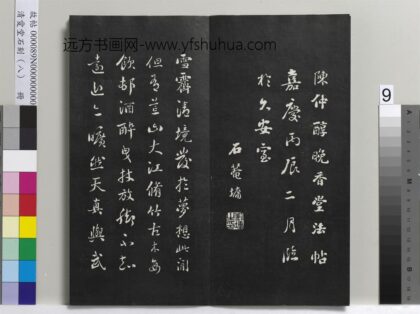 陳仲醇晚香堂法帖
嘉慶丙辰二月臨
於久安室
石菴墉
雪霽清境發於夢想此間
但有荒山大江脩竹古木每
飲邨酒醉曳杖放腳不知
遠近亦曠然天真與武
远方书画网-www.yfshuhua.com
故帖 000089N000000000
清愛堂石刻(八) 冊
9